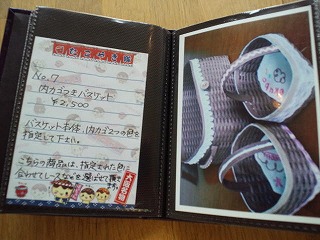 No.7
内カゴつきバスケット
¥2,500
バスケット本体、内カゴ2つの色を
指定して下さい。
こちらの商品は、指定された色に
合わせてレースなどを選ばせて頂き
ます。